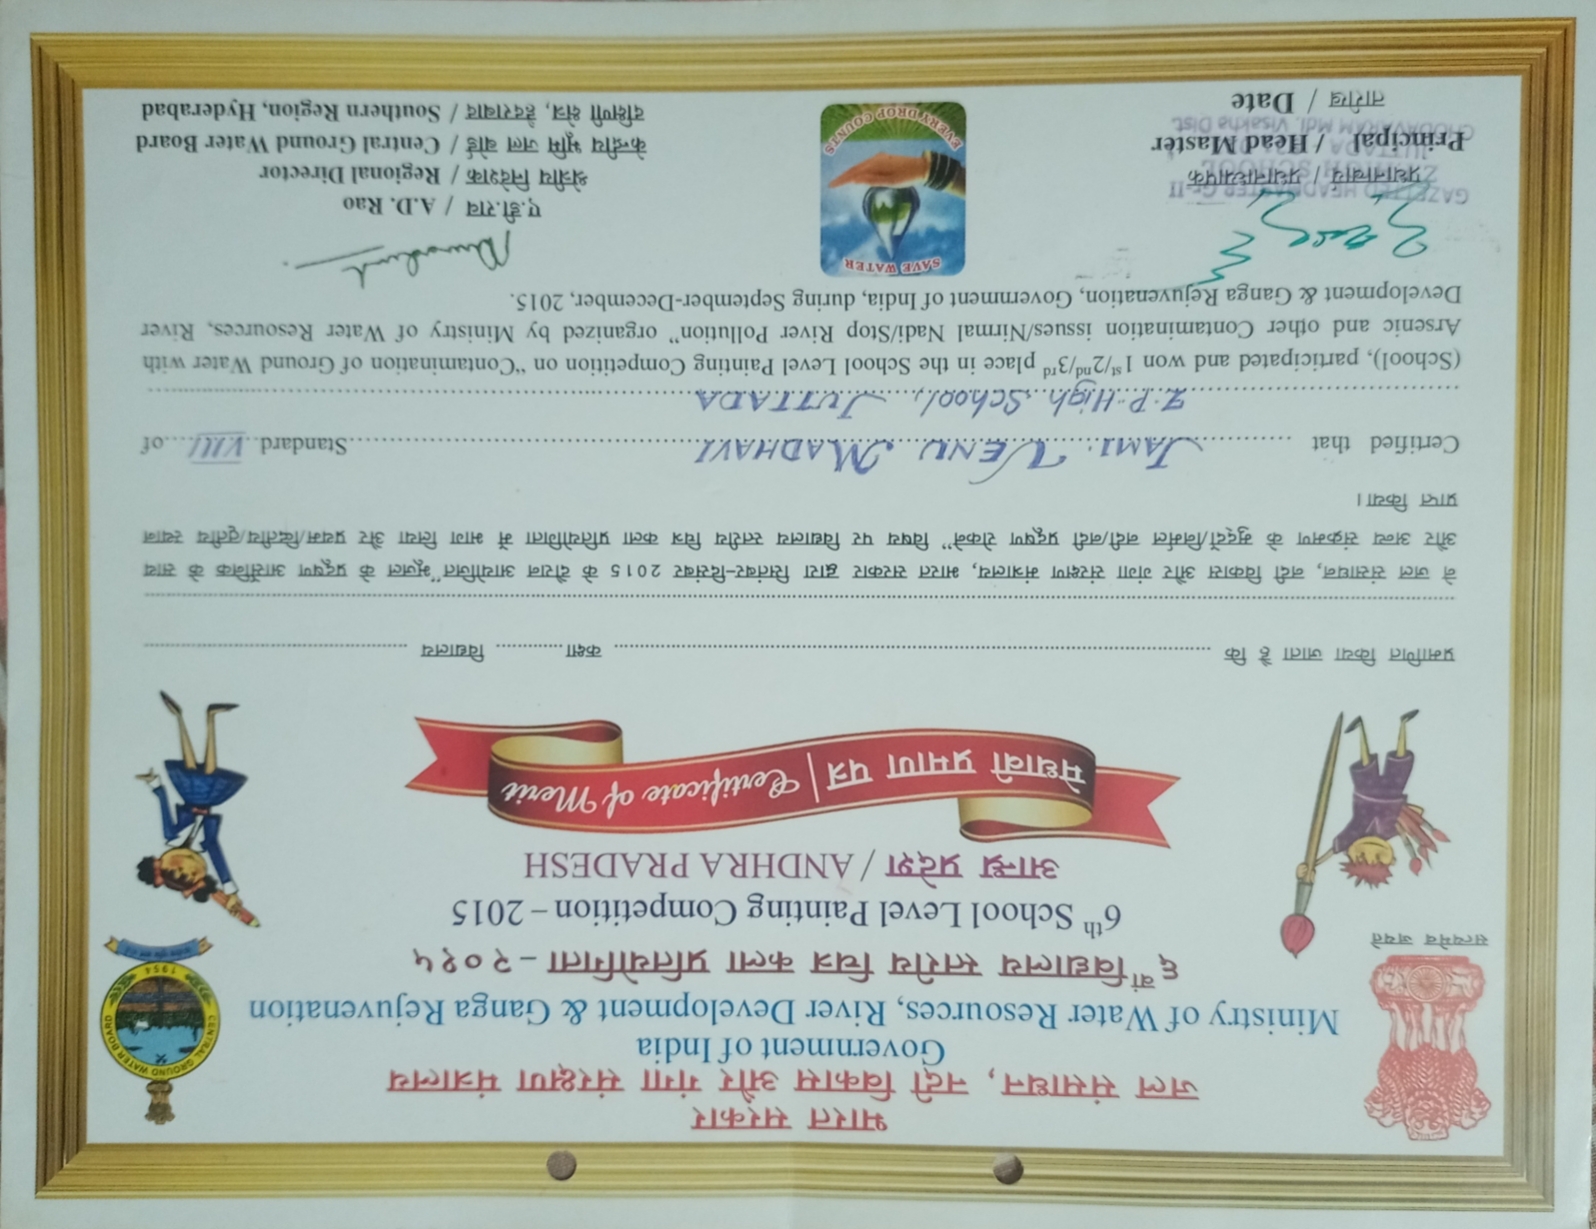 भारत सरकार
जल संसाधन, नदी विकास और गंगा संरक्षण मंत्रालय
Government of India
Ministry of Water Resources, River Development & Ganga Rejuvenation
सत्यमेव जयते
CENTRAL GROUND WATER BOARD
1954
६वां विद्यालय स्तरीय चित्र कला प्रतियोगिता - २०१५
6th School Level Painting Competition - 2015
आन्ध्र प्रदेश / ANDHRA PRADESH
मेधावी प्रमाण पत्र | Certificate of Merit
प्रमाणित किया जाता है कि ........ कक्षा ........ विद्यालय ........
ने जल संसाधन, नदी विकास और गंगा संरक्षण मंत्रालय, भारत सरकार द्वारा सितंबर-दिसंबर 2015 के दौरान आयोजित "भूजल के प्रदूषण आर्सेनिक के साथ
और अन्य संक्रमण के मुद्दों/निर्मल नदी/नदी प्रदूषण रोकने" विषय पर विद्यालय स्तरीय चित्र कला प्रतियोगिता में भाग लिया अैर प्रथम/व्दितीय/तृतीय स्थान
प्राप्त किया।
Certified that JAMI. VENU MADHAVI Standard VIII of
Z.P. High School, JUTTADA
(School), participated and won 1st/2nd/3rd place in the School Level Painting Competition on "Contamination of Ground Water with
Arsenic and other Contamination issues/Nirmal Nadi/Stop River Pollution" organized by Ministry of Water Resources, River
Development & Ganga Rejuvenation, Government of India, during September-December, 2015.
GAZETTED HEADMASTER Gr-II
प्रधानाचार्य / प्रधानाध्यापक
Principal / Head Master
CHODAVARAM Mdl. Visakha Dist.
तारीख / Date
SAVE WATER
EVERY DROP COUNTS
ए.डी.राव / A.D. Rao
श्रेत्रीय निदेशक / Regional Director
केन्द्रीय भूमि जल बोर्ड / Central Ground Water Board
दक्षिणी क्षेत्र, हैदराबाद / Southern Region, Hyderabad